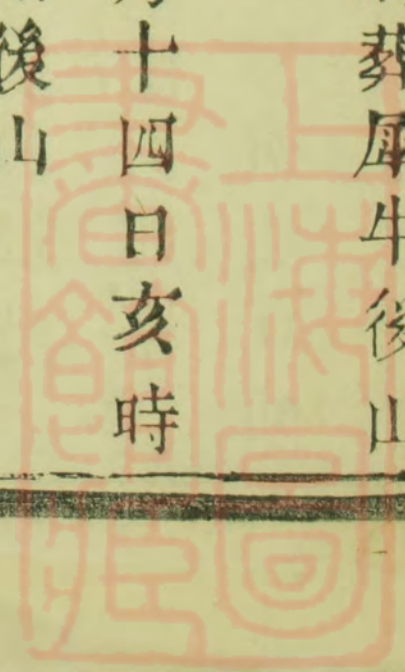 葬犀牛後山
十四日亥時
後山
上海圖書館藏